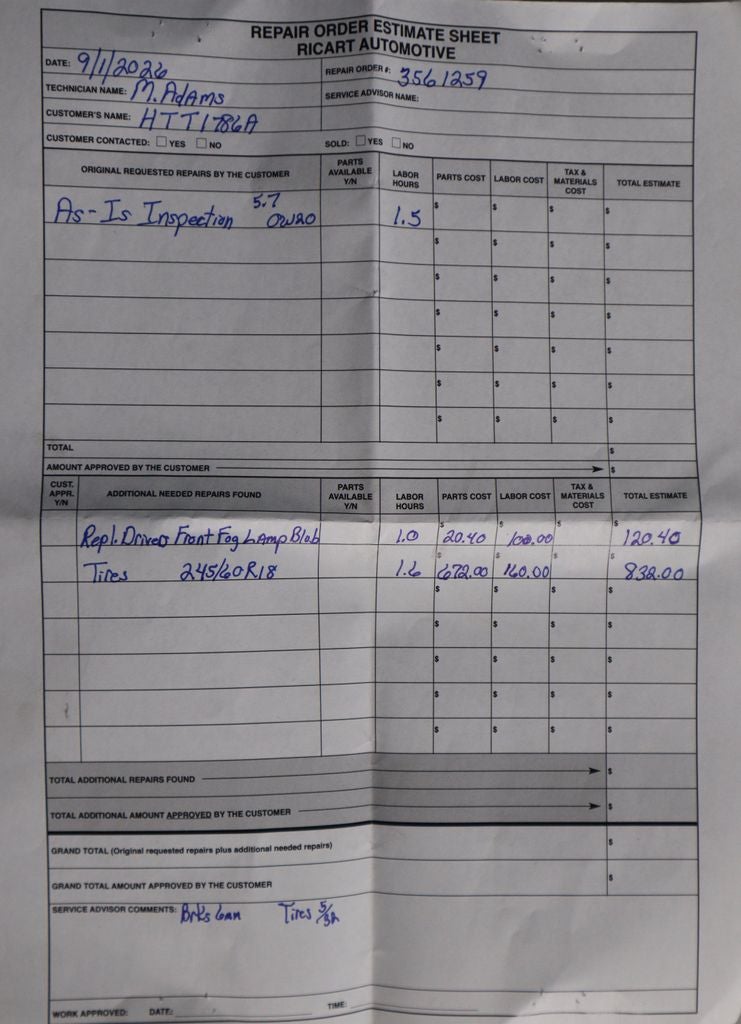 REPAIR ORDER ESTIMATE SHEET
RICART AUTOMOTIVE
DATE: 9/1/2026
REPAIR ORDER #: 3561259
TECHNICIAN NAME: M. Adams
SERVICE ADVISOR NAME:
CUSTOMER'S NAME: HTT1786A
CUSTOMER CONTACTED: YES NO
SOLD: YES NO
ORIGINAL REQUESTED REPAIRS BY THE CUSTOMER PARTS AVAILABLE Y/N LABOR HOURS PARTS COST LABOR COST TAX & MATERIALS COST TOTAL ESTIMATE
As-Is Inspection 5.7 0W20 1.5 $ $ $ $
$ $ $ $
$ $ $ $
$ $ $ $
$ $ $ $
$ $ $ $
$ $ $ $
TOTAL $
AMOUNT APPROVED BY THE CUSTOMER $
CUST. APPR. Y/N ADDITIONAL NEEDED REPAIRS FOUND PARTS AVAILABLE Y/N LABOR HOURS PARTS COST LABOR COST TAX & MATERIALS COST TOTAL ESTIMATE
Repl. Drivers Front Fog Lamp Blub 1.0 $20.40 $100.00 $ $120.40
Tires 245/60R18 1.6 $672.00 $160.00 $ $832.00
$ $ $ $
$ $ $ $
$ $ $ $
$ $ $ $
$ $ $ $
TOTAL ADDITIONAL REPAIRS FOUND $
TOTAL ADDITIONAL AMOUNT APPROVED BY THE CUSTOMER $
GRAND TOTAL (Original requested repairs plus additional needed repairs) $
GRAND TOTAL AMOUNT APPROVED BY THE CUSTOMER $
SERVICE ADVISOR COMMENTS: Brks 6mm Tires 5/32
WORK APPROVED: DATE: TIME: